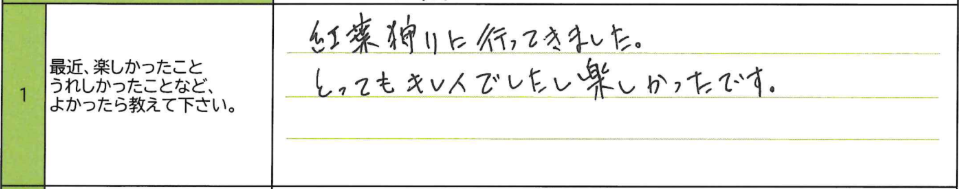 1
最近、楽しかったこと
うれしかったことなど、
よかったら教えて下さい。
紅葉狩りに行ってきました。
とってもキレイでしたし楽しかったです。